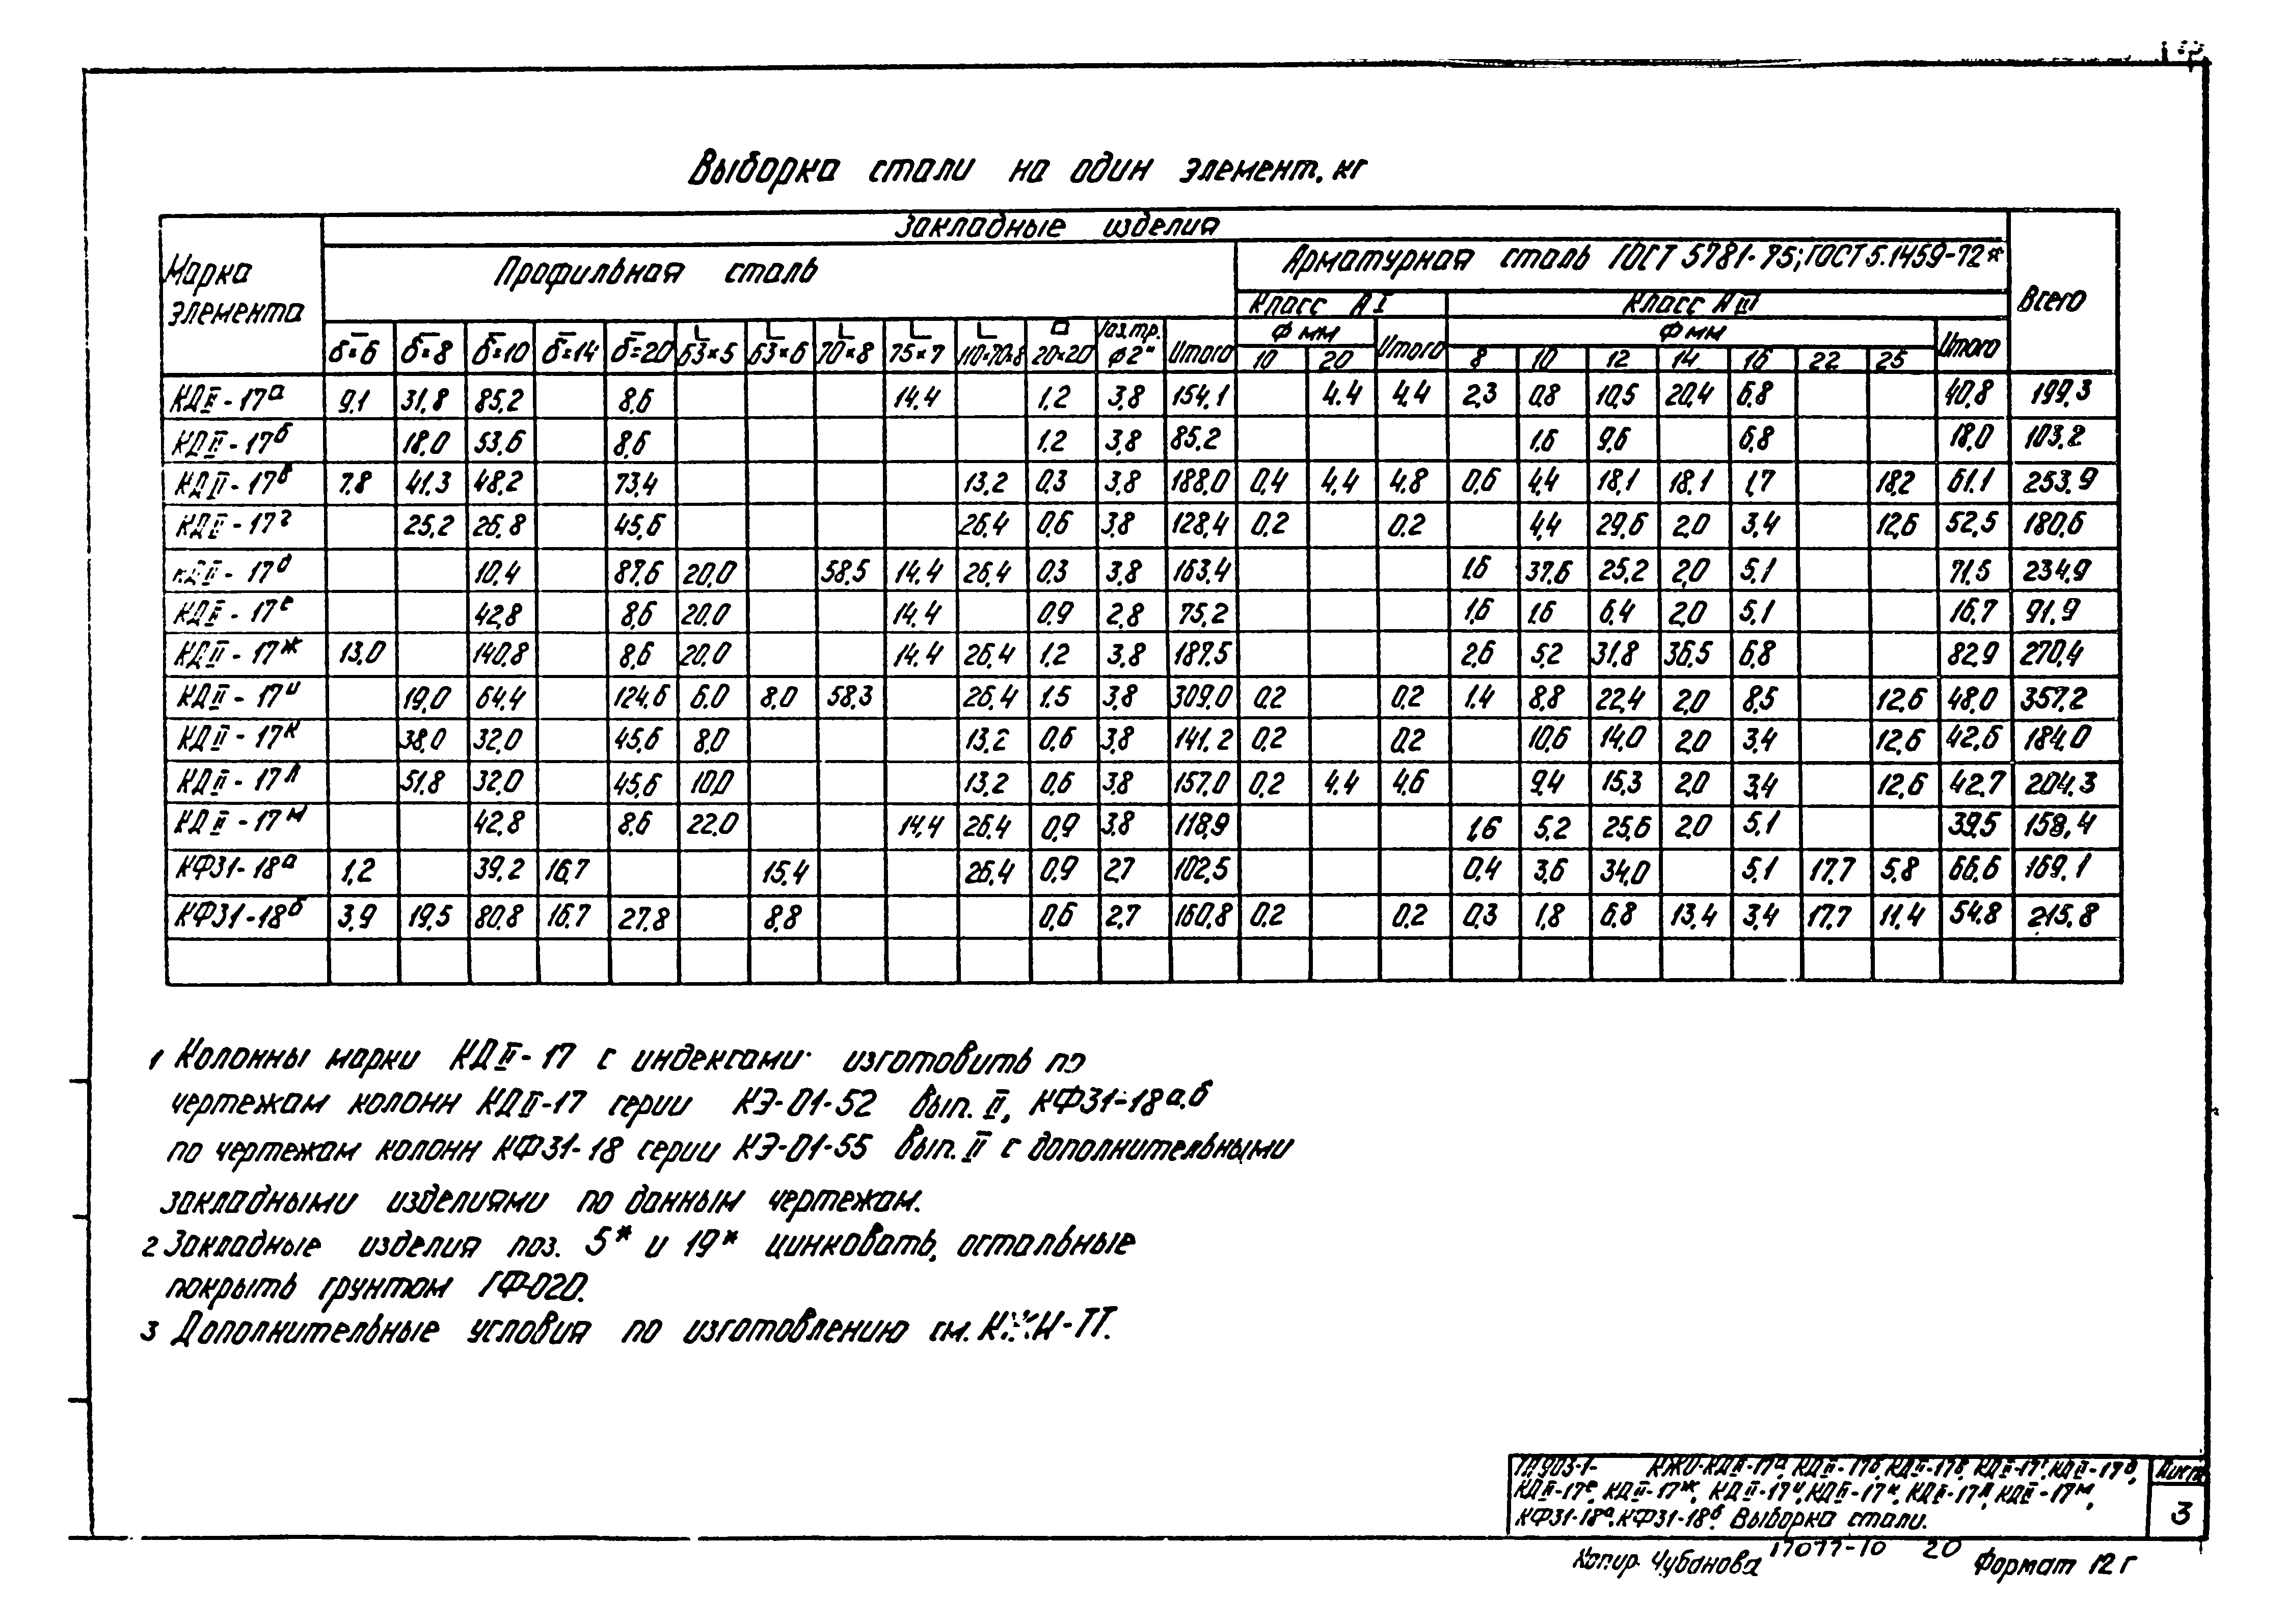 Выборка стали на один элемент, кг
Марка элемента | Закладные изделия | Всего
Профильная сталь | Арматурная сталь ГОСТ 5781-75; ГОСТ 5.1459-72*
Класс АI | Класс АIII
δ=6 | δ=8 | δ=10 | δ=14 | δ=20 | 63×5 | 63×6 | 70×8 | 75×7 | 110×70×8 | 20×20 | Газ.тр. ø2" | Итого | Ф мм | Итого | Ф мм | Итого
10 | 20 | 8 | 10 | 12 | 14 | 16 | 22 | 25
КДII-17а | 9,1 | 31,8 | 85,2 | | 8,6 | | | | 14,4 | | 1,2 | 3,8 | 154,1 | | 4,4 | 4,4 | 2,3 | 0,8 | 10,5 | 20,4 | 6,8 | | | 40,8 | 199,3
КДII-17б | | 18,0 | 53,6 | | 8,6 | | | | | | 1,2 | 3,8 | 85,2 | | | | | 1,6 | 9,6 | | 6,8 | | | 18,0 | 103,2
КДII-17в | 7,8 | 41,3 | 48,2 | | 73,4 | | | | | 13,2 | 0,3 | 3,8 | 188,0 | 0,4 | 4,4 | 4,8 | 0,6 | 4,4 | 18,1 | 18,1 | 1,7 | | 18,2 | 61,1 | 253,9
КДII-17г | | 25,2 | 26,8 | | 45,6 | | | | | 26,4 | 0,6 | 3,8 | 128,4 | 0,2 | | 0,2 | | 4,4 | 29,6 | 2,0 | 3,4 | | 12,6 | 52,5 | 180,6
КДII-17д | | | 10,4 | | 87,6 | 20,0 | | 58,5 | 14,4 | 26,4 | 0,3 | 3,8 | 163,4 | | | | 1,6 | 37,6 | 25,2 | 2,0 | 5,1 | | | 71,5 | 234,9
КДII-17е | | | 42,8 | | 8,6 | 20,0 | | | 14,4 | | 0,9 | 2,8 | 75,2 | | | | 1,6 | 1,6 | 6,4 | 2,0 | 5,1 | | | 16,7 | 91,9
КДII-17ж | 13,0 | | 140,8 | | 8,6 | 20,0 | | | 14,4 | 26,4 | 1,2 | 3,8 | 187,5 | | | | 2,6 | 5,2 | 31,8 | 36,5 | 6,8 | | | 82,9 | 270,4
КДII-17и | | 19,0 | 64,4 | | 124,6 | 6,0 | 8,0 | 58,3 | | 26,4 | 1,5 | 3,8 | 309,0 | 0,2 | | 0,2 | 1,4 | 8,8 | 22,4 | 2,0 | 8,5 | | 12,6 | 48,0 | 357,2
КДII-17к | | 38,0 | 32,0 | | 45,6 | 8,0 | | | | 13,2 | 0,6 | 3,8 | 141,2 | 0,2 | | 0,2 | | 10,6 | 14,0 | 2,0 | 3,4 | | 12,6 | 42,6 | 184,0
КДII-17л | | 51,8 | 32,0 | | 45,6 | 10,0 | | | | 13,2 | 0,6 | 3,8 | 157,0 | 0,2 | 4,4 | 4,6 | | 9,4 | 15,3 | 2,0 | 3,4 | | 12,6 | 42,7 | 204,3
КДII-17м | | | 42,8 | | 8,6 | 22,0 | | | 14,4 | 26,4 | 0,9 | 3,8 | 118,9 | | | | 1,6 | 5,2 | 25,6 | 2,0 | 5,1 | | | 39,5 | 158,4
КФ31-18а | 1,2 | | 39,2 | 16,7 | | | 15,4 | | | 26,4 | 0,9 | 2,7 | 102,5 | | | | 0,4 | 3,6 | 34,0 | | 5,1 | 17,7 | 5,8 | 66,6 | 169,1
КФ31-18б | 3,9 | 19,5 | 80,8 | 16,7 | 27,8 | | 8,8 | | | | 0,6 | 2,7 | 160,8 | 0,2 | | 0,2 | 0,3 | 1,8 | 6,8 | 13,4 | 3,4 | 17,7 | 11,4 | 54,8 | 215,8
1 Колонны марки КДII-17 с индексами изготовить по
чертежам колонн КДII-17 серии КЭ-01-52 Вып. II, КФ31-18а,б
по чертежам колонн КФ31-18 серии КЭ-01-55 Вып. II с дополнительными
закладными изделиями по данным чертежам.
2 Закладные изделия поз. 5* и 19* цинковать, остальные
покрыть грунтом ГФ-020.
3 Дополнительные условия по изготовлению см. КЖИ-ТТ.
ТП903-1- КЖО-КДII-17а, КДII-17б, КДII-17в, КДII-17г, КДII-17д,
КДII-17е, КДII-17ж, КДII-17и, КДII-17к, КДII-17л, КДII-17м,
КФ31-18а, КФ31-18б. Выборка стали.
Лист
3
Копир. Чубанова 17077-10 20 Формат 12г